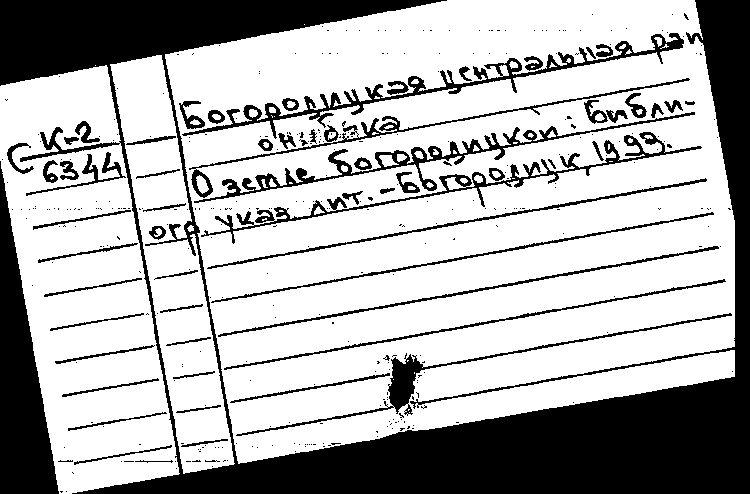 Богородицкая центральная рай
он. б-ка
С К-2
6344
О земле богородицкой: Библи-
огр. указ. лит. - Богородицк, 1993.